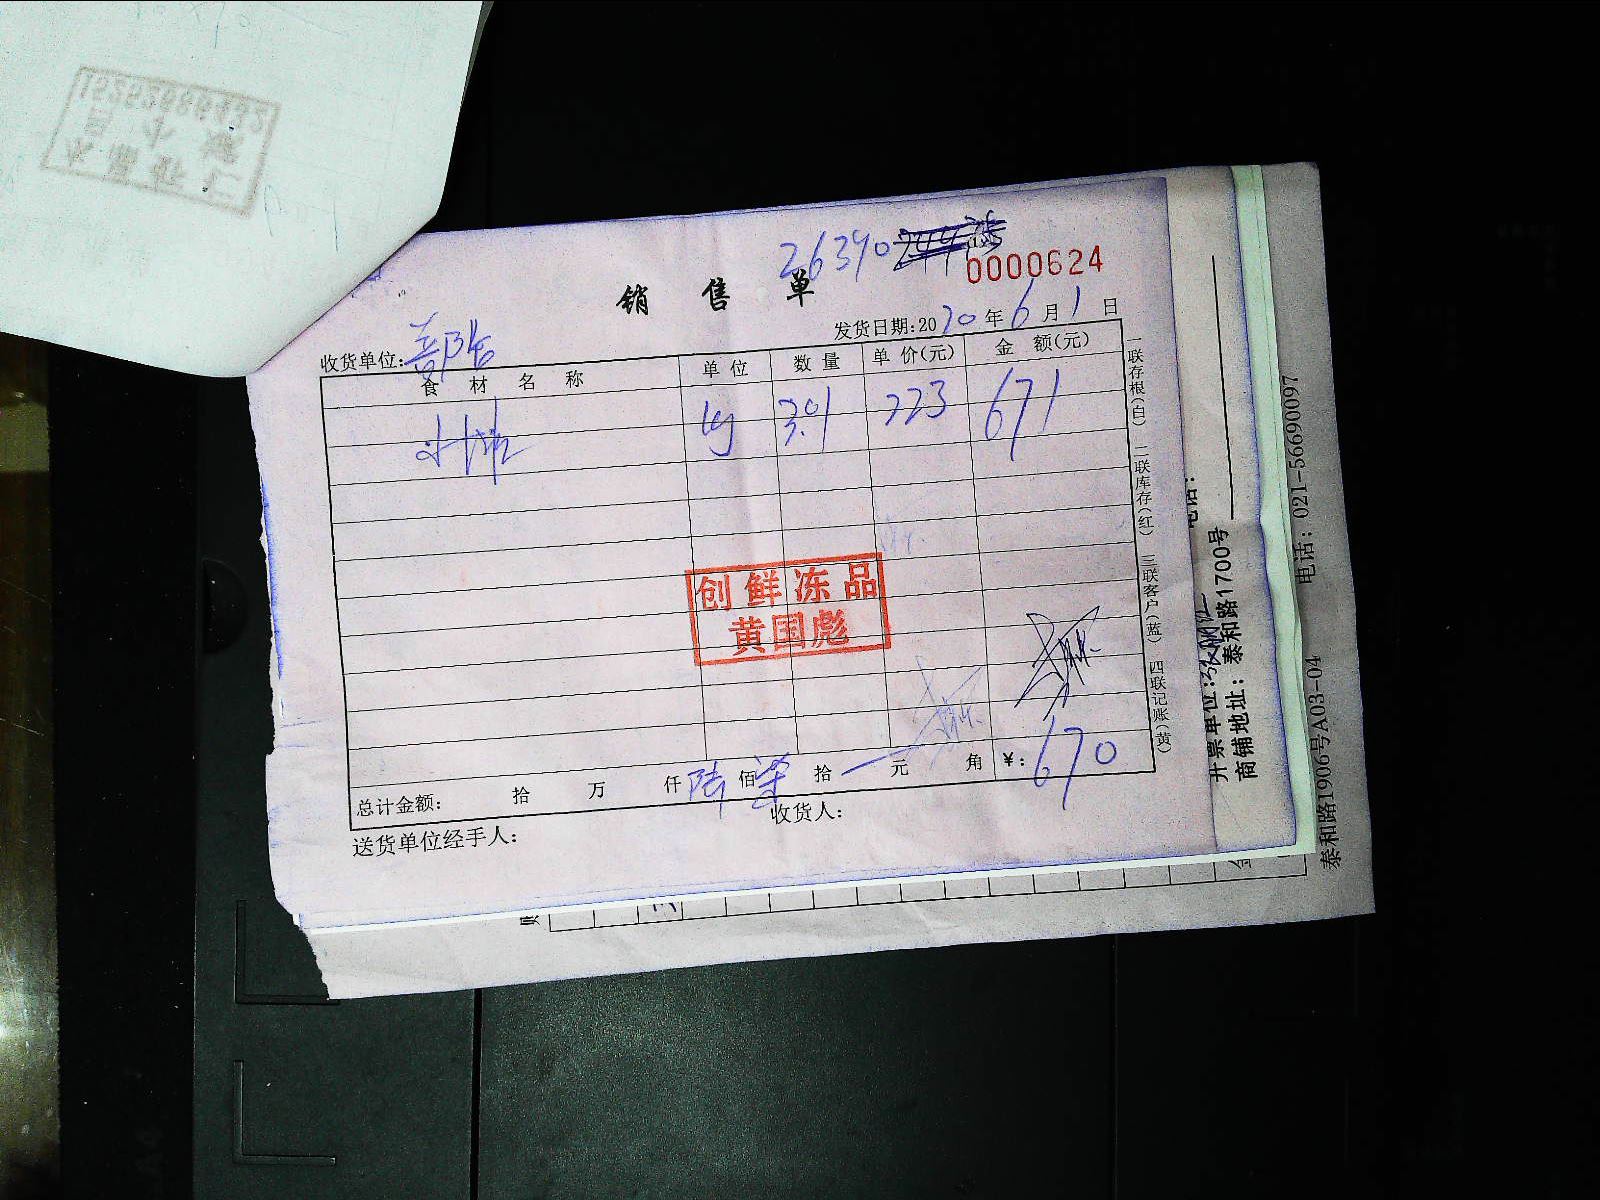 26390
0000624
销 售 单
发货日期:2020年6月1日
收货单位:
食 材 名 称 单 位 数 量 单 价(元) 金 额(元)
kg 3.01 223 671
创鲜冻品
黄国彪
总计金额: 拾 万 仟 陆 佰 柒 拾 一 元 角 ¥: 670
送货单位经手人: 收货人:
一联存根(白) 二联库存(红) 三联客户(蓝) 四联记账(黄)
电话:
开票单位:
商铺地址: 泰和路1700号
泰和路1906号A03-04 电话: 021-56690097